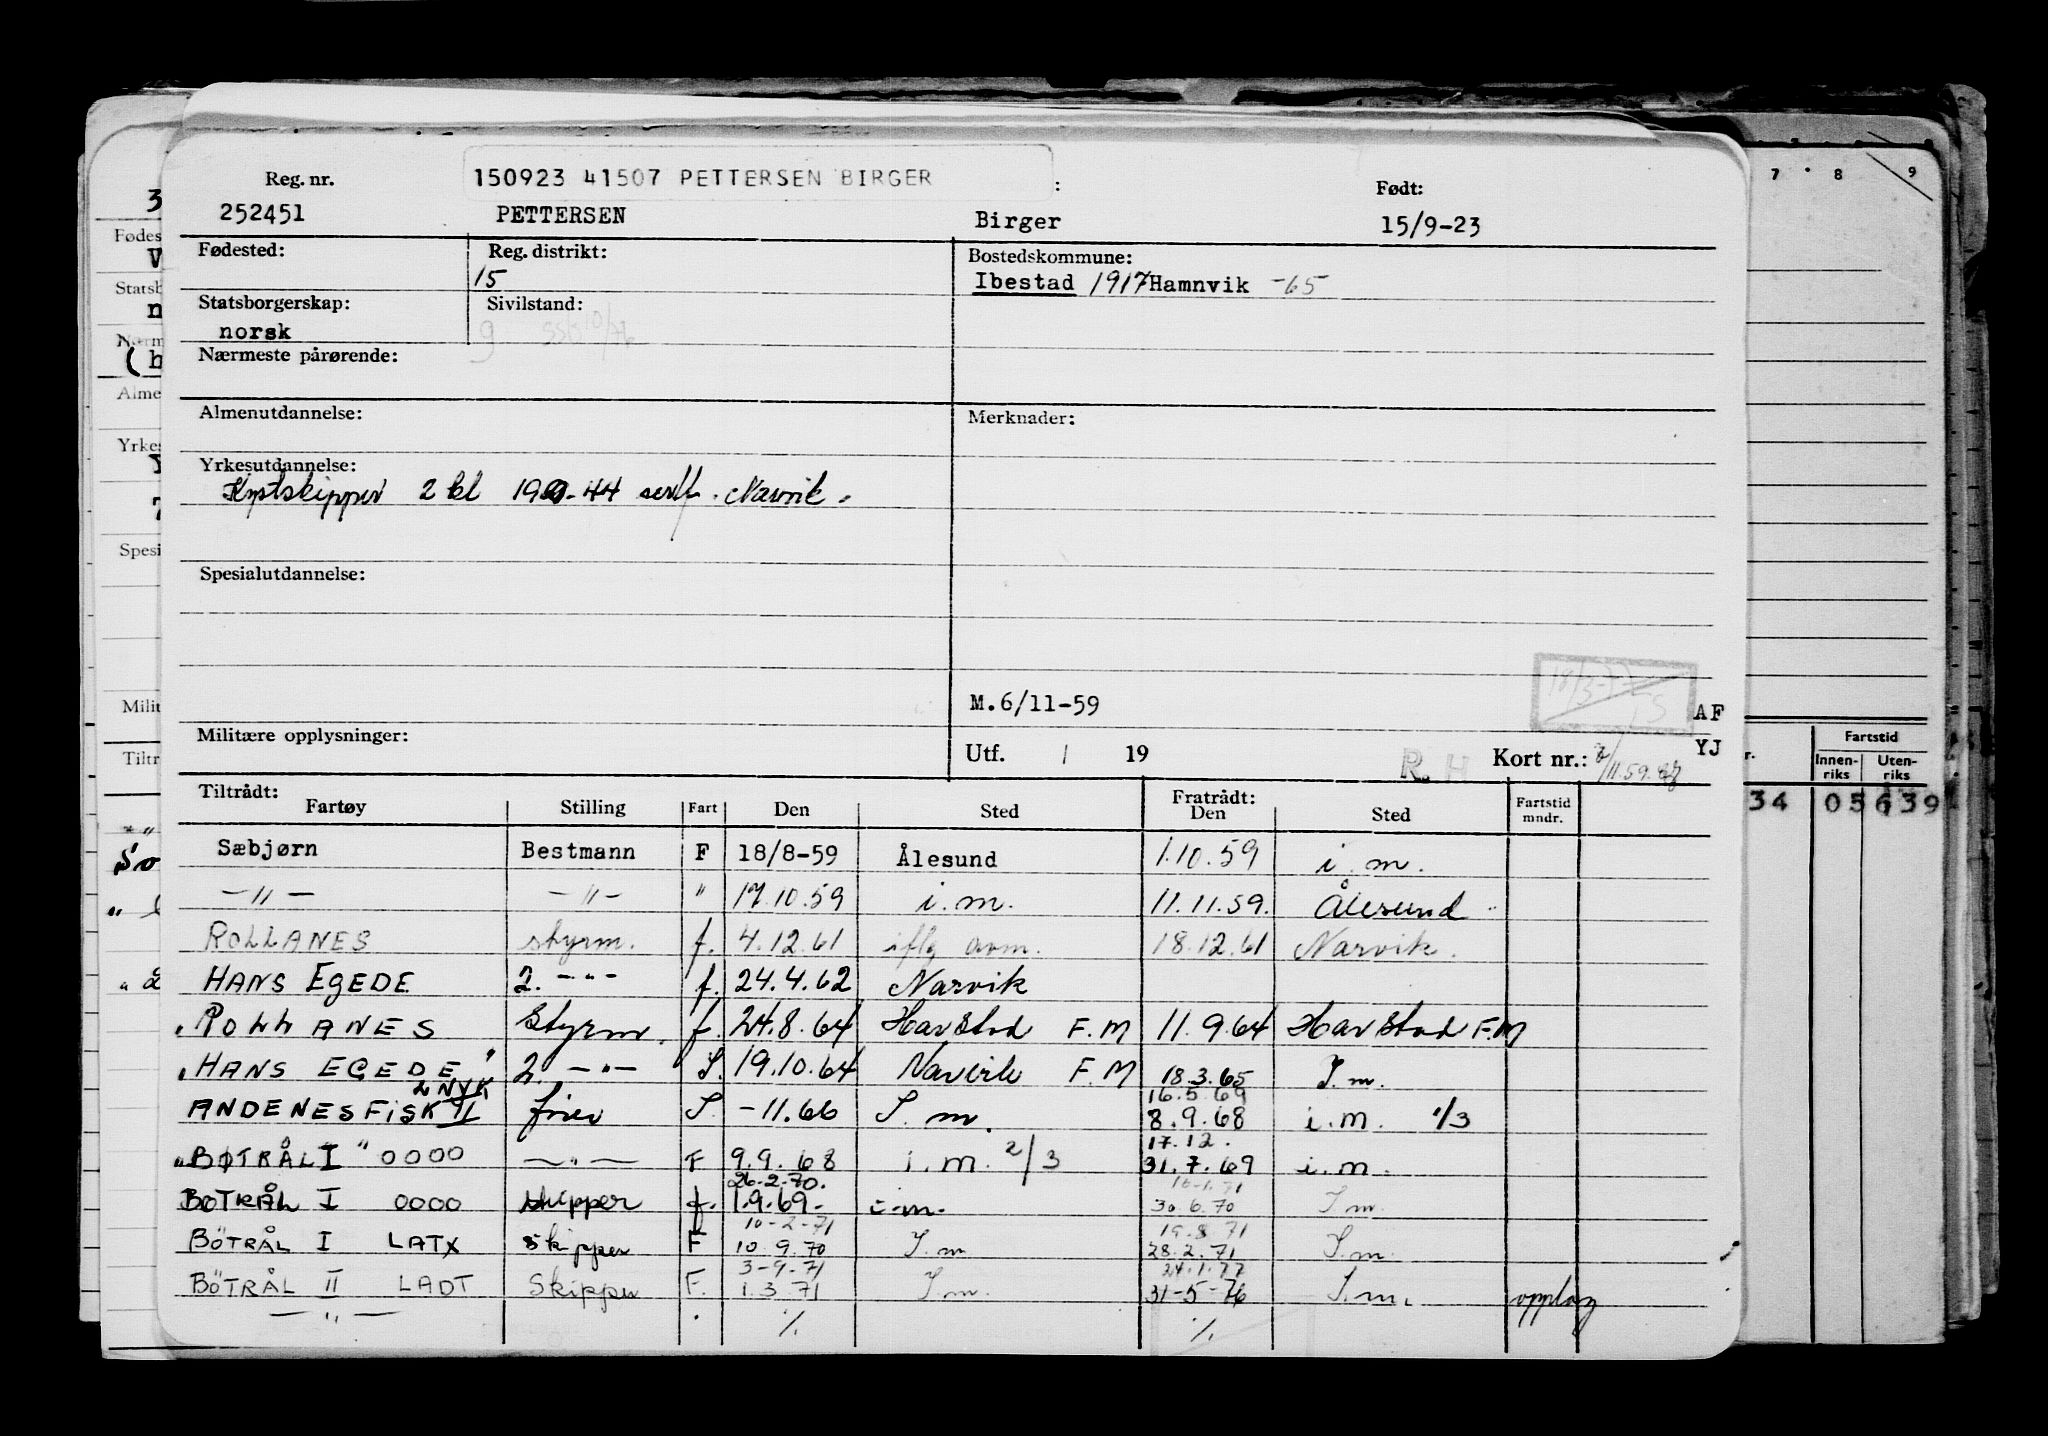 Reg. nr. 150923 41507 PETTERSEN BIRGER : Født:
252451 PETTERSEN Birger 15/9-23
Fødested: Reg. distrikt: Bostedskommune:
15 Ibestad 1917 Hamnvik -65
Statsborgerskap: Sivilstand:
norsk g
Nærmeste pårørende:
Almenutdannelse: Merknader:
Yrkesutdannelse:
Kystskipper 2 kl -44 sertf. Narvik.
Spesialutdannelse:
M.6/11-59
AF
Militære opplysninger: Utf. / 19 R. H Kort nr.: YJ
Tiltrådt: Fratrådt:
Fartøy Stilling Fart Den Sted Den Sted Fartstid mndr.
Sæbjørn Bestmann F 18/8-59 Ålesund 1.10.59 i.m.
—"— —"— " 17.10.59 i.m. 11.11.59. Ålesund
ROLLANES styrm. f. 4.12.61 iflg avm. 18.12.61 Narvik.
HANS EGEDE 2. —"— f. 24.4.62 Narvik
"ROLLANES Styrm. f. 24.8.64 Harstad F.M 11.9.64 Harstad F.M
"HANS EGEDE" 2. —"— S. 19.10.64 Narvik F.M 18.3.65 I.m.
LNYK 16.5.69
ANDENESFISK II S. -11.66 I.m. 8.9.68 i.m. 1/3
17.12.
"BØTRÅL I" OOOO —"— F 9.9.68 i.m. 2/3 31.7.69 i.m.
26.2.70. 16.1.71
BØTRÅL I OOOO skipper f. 1.9.69. i.m. 30.6.70 I.m.
10-2-71 19.8.71
BÖTRÅL I LATX skipper F 10.9.70 I.m 28.2.71 I.m.
3-9-71 24.1.77
BÖTRÅL II LADT Skipper F. 1.3.71 I.m. 31-5-76 I.m. opplag
—"— ٪ ٪
3
Fødes
V
Statsb
n
Nærm
(b
Alme
Yrkes
Spesi
Milit
Tiltr
So
7 8 9
Fartstid
Innen-riks Uten-riks
34 05 639